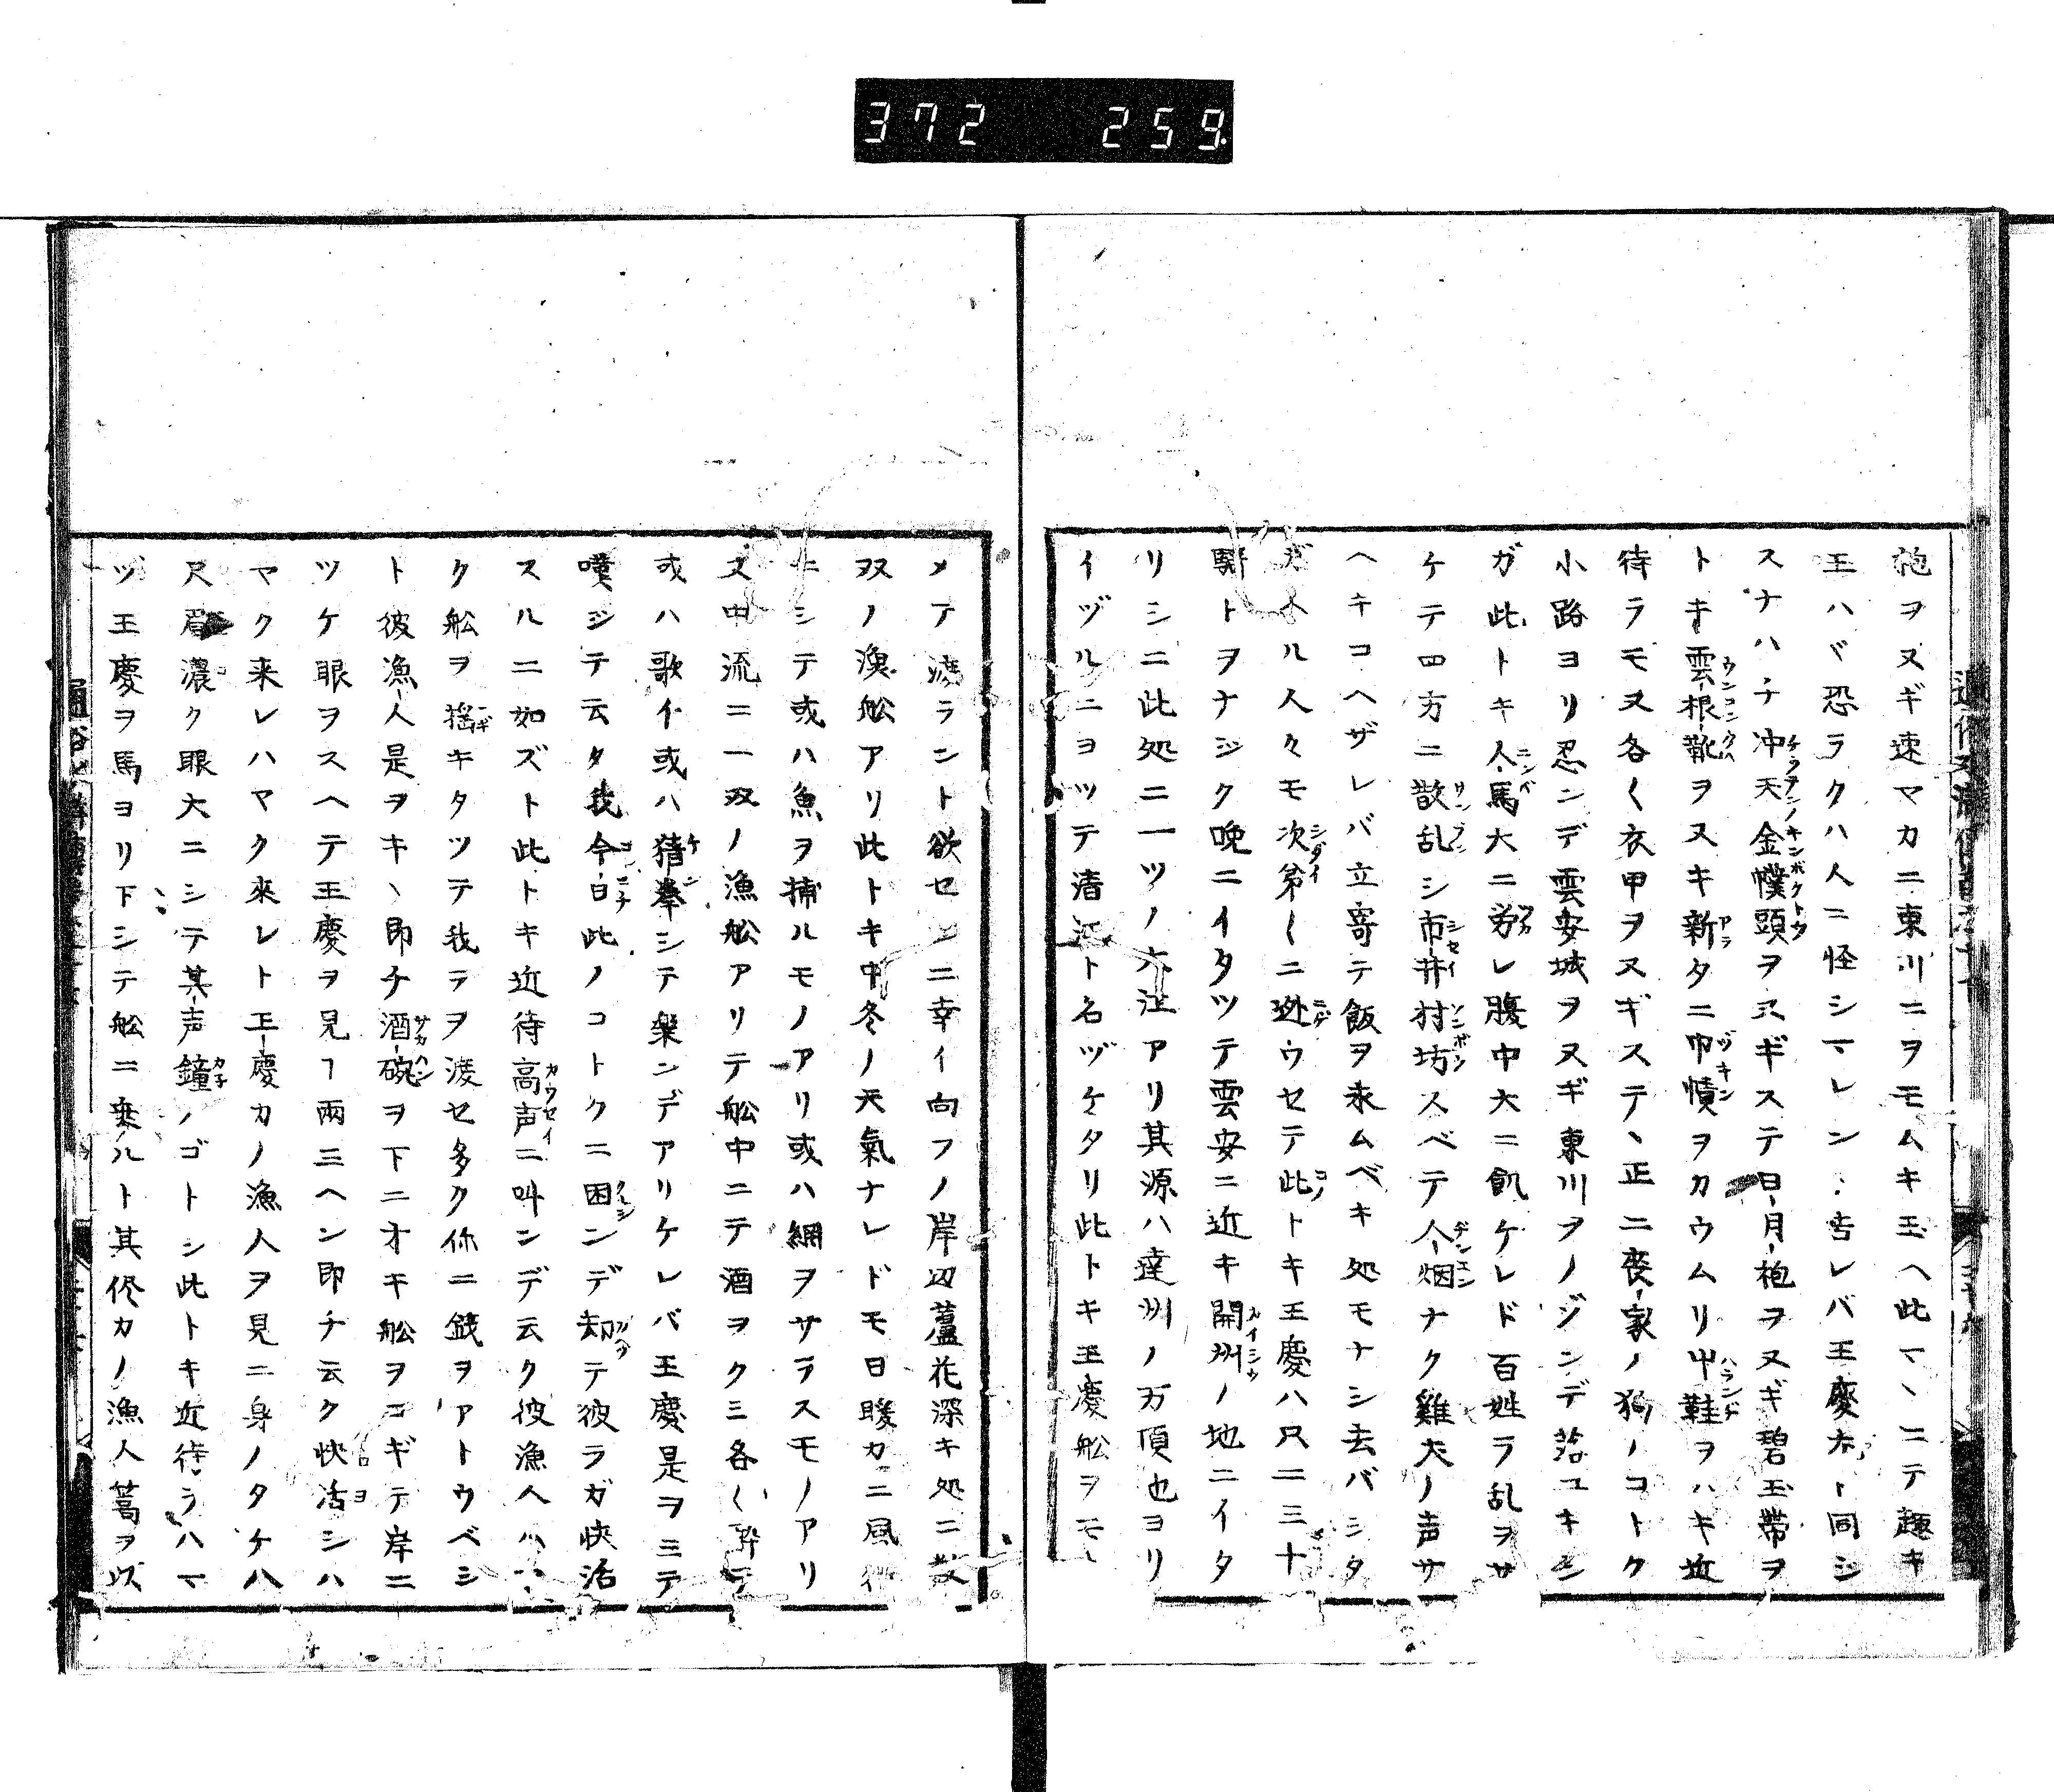 372 259
袍ヲヌギ速マカニ東川ニヲモムキ玉ヘ此マヽニテ趣キ
玉ハヾ恐ラクハ人ニ怪シマレン告レバ王慶大ト同シ
スナハチ冲天金幞頭ヲヌギステ日月袍ヲヌギ碧玉帶ヲ
トキ雲根靴ヲヌキ新タニ巾幘ヲカウムリ鞋ヲハキ近
待ラモ又各〱衣甲ヲヌギステヽ正ニ喪家ノ狗ノコトク
小路ヨリ忍ンデ雲安城ヲヌギ東川ヲノゾンデ落ユキシ
ガ此トキ人馬大ニ労レ腹中大ニ飢ケレド百姓ラ乱ヲサ
ケテ四方ニ散乱シ市井村坊スベテ人烟ナク雞犬ノ声サ
ヘキコヘザレバ立寄テ飯ヲ求ムベキ処モナシ去バシタ
ガヘル人々モ次第〱ニ迯ウセテ此トキ王慶ハ只二三十
騎トヲナジク晩ニイタツテ雲安ニ近キ開州ノ地ニイタ
リシニ此処ニ一ツノ大江アリ其源ハ達州ノ万頃也ヨリ
イヅルニヨツテ清江ト名ヅケタリ此トキ王慶舩ヲモ
メテ渡ラント欲セシニ幸イ向フノ岸辺蘆花深キ処ニ数
双ノ漁舩アリ此トキ中冬ノ天氣ナレドモ日暖カニ風
ニシテ或ハ魚ヲ捕ルモノアリ或ハ網ヲサラスモノアリ
又中流ニ一双ノ漁舩アリテ舩中ニテ酒ヲクミ各〱酔テ
或ハ歌イ或ハ猜拳シテ楽ンデアリケレバ王慶是ヲミテ
嘆ジテ云タ我今日此ノコトクニ困ンデ却テ彼ラガ快活
スルニ如ズト此トキ近待高声ニ叫ンデ云ク彼漁人
ク舩ヲ揺キタツテ我ラヲ渡セ多ク你ニ錢ヲアトウベシ
ト彼漁人是ヲキヽ即チ酒碗ヲ下ニオキ舩ヲコギテ岸ニ
ツケ眼ヲスヘテ王慶ヲ見ヿ兩三ヘン即チ云ク快活シハ
マク来レハマク來レト王慶カノ漁人ヲ見ニ身ノタケ八
尺眉濃ク眼大ニシテ其声鐘ノゴトシ此トキ近待ラハマ
ヅ王慶ヲ馬ヨリ下シテ舩ニ乗ルト其侭カノ漁人蒿ヲ以